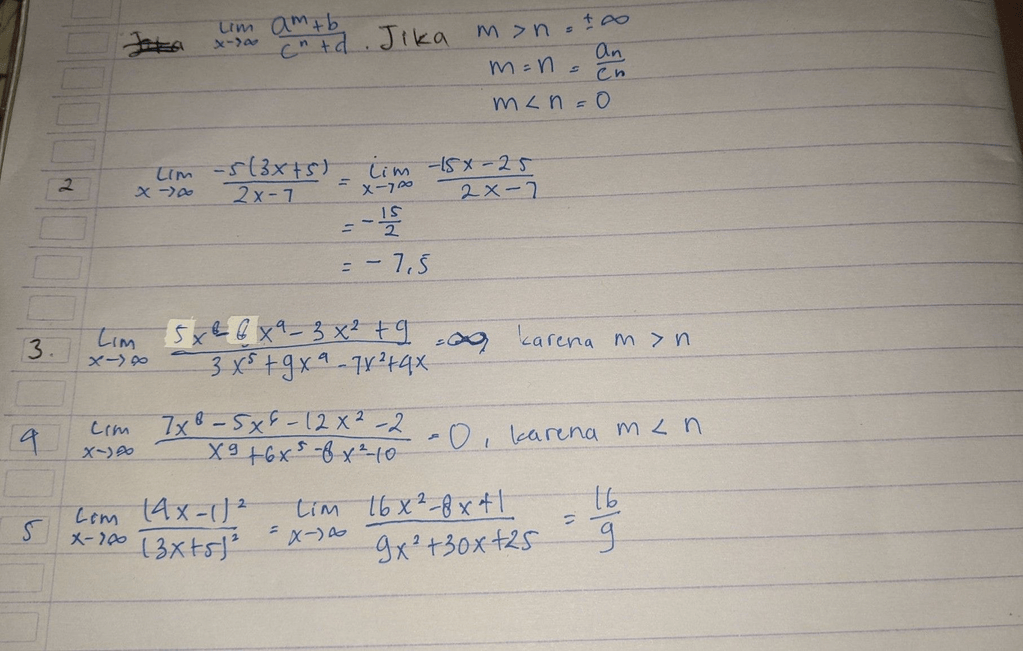 Lim x→∞ am+b / cn+d . Jika m > n = ± ∞
m = n = an / cn
m < n = 0
2 Lim x→∞ -5(3x+5) / 2x-7 = Lim x→∞ -15x-25 / 2x-7
= - 15/2
= - 7,5
3. Lim x→∞ 5x⁸-6x⁴-3x²+9 / 3x⁵+9x⁴-7x²+4x = ∞, karena m > n
4 Lim x→∞ 7x⁸-5x⁶-12x²-2 / x⁹+6x⁵-8x²-10 = 0, karena m < n
5 Lim x→∞ (4x-1)² / (3x+5)² = Lim x→∞ 16x²-8x+1 / 9x²+30x+25 = 16/9